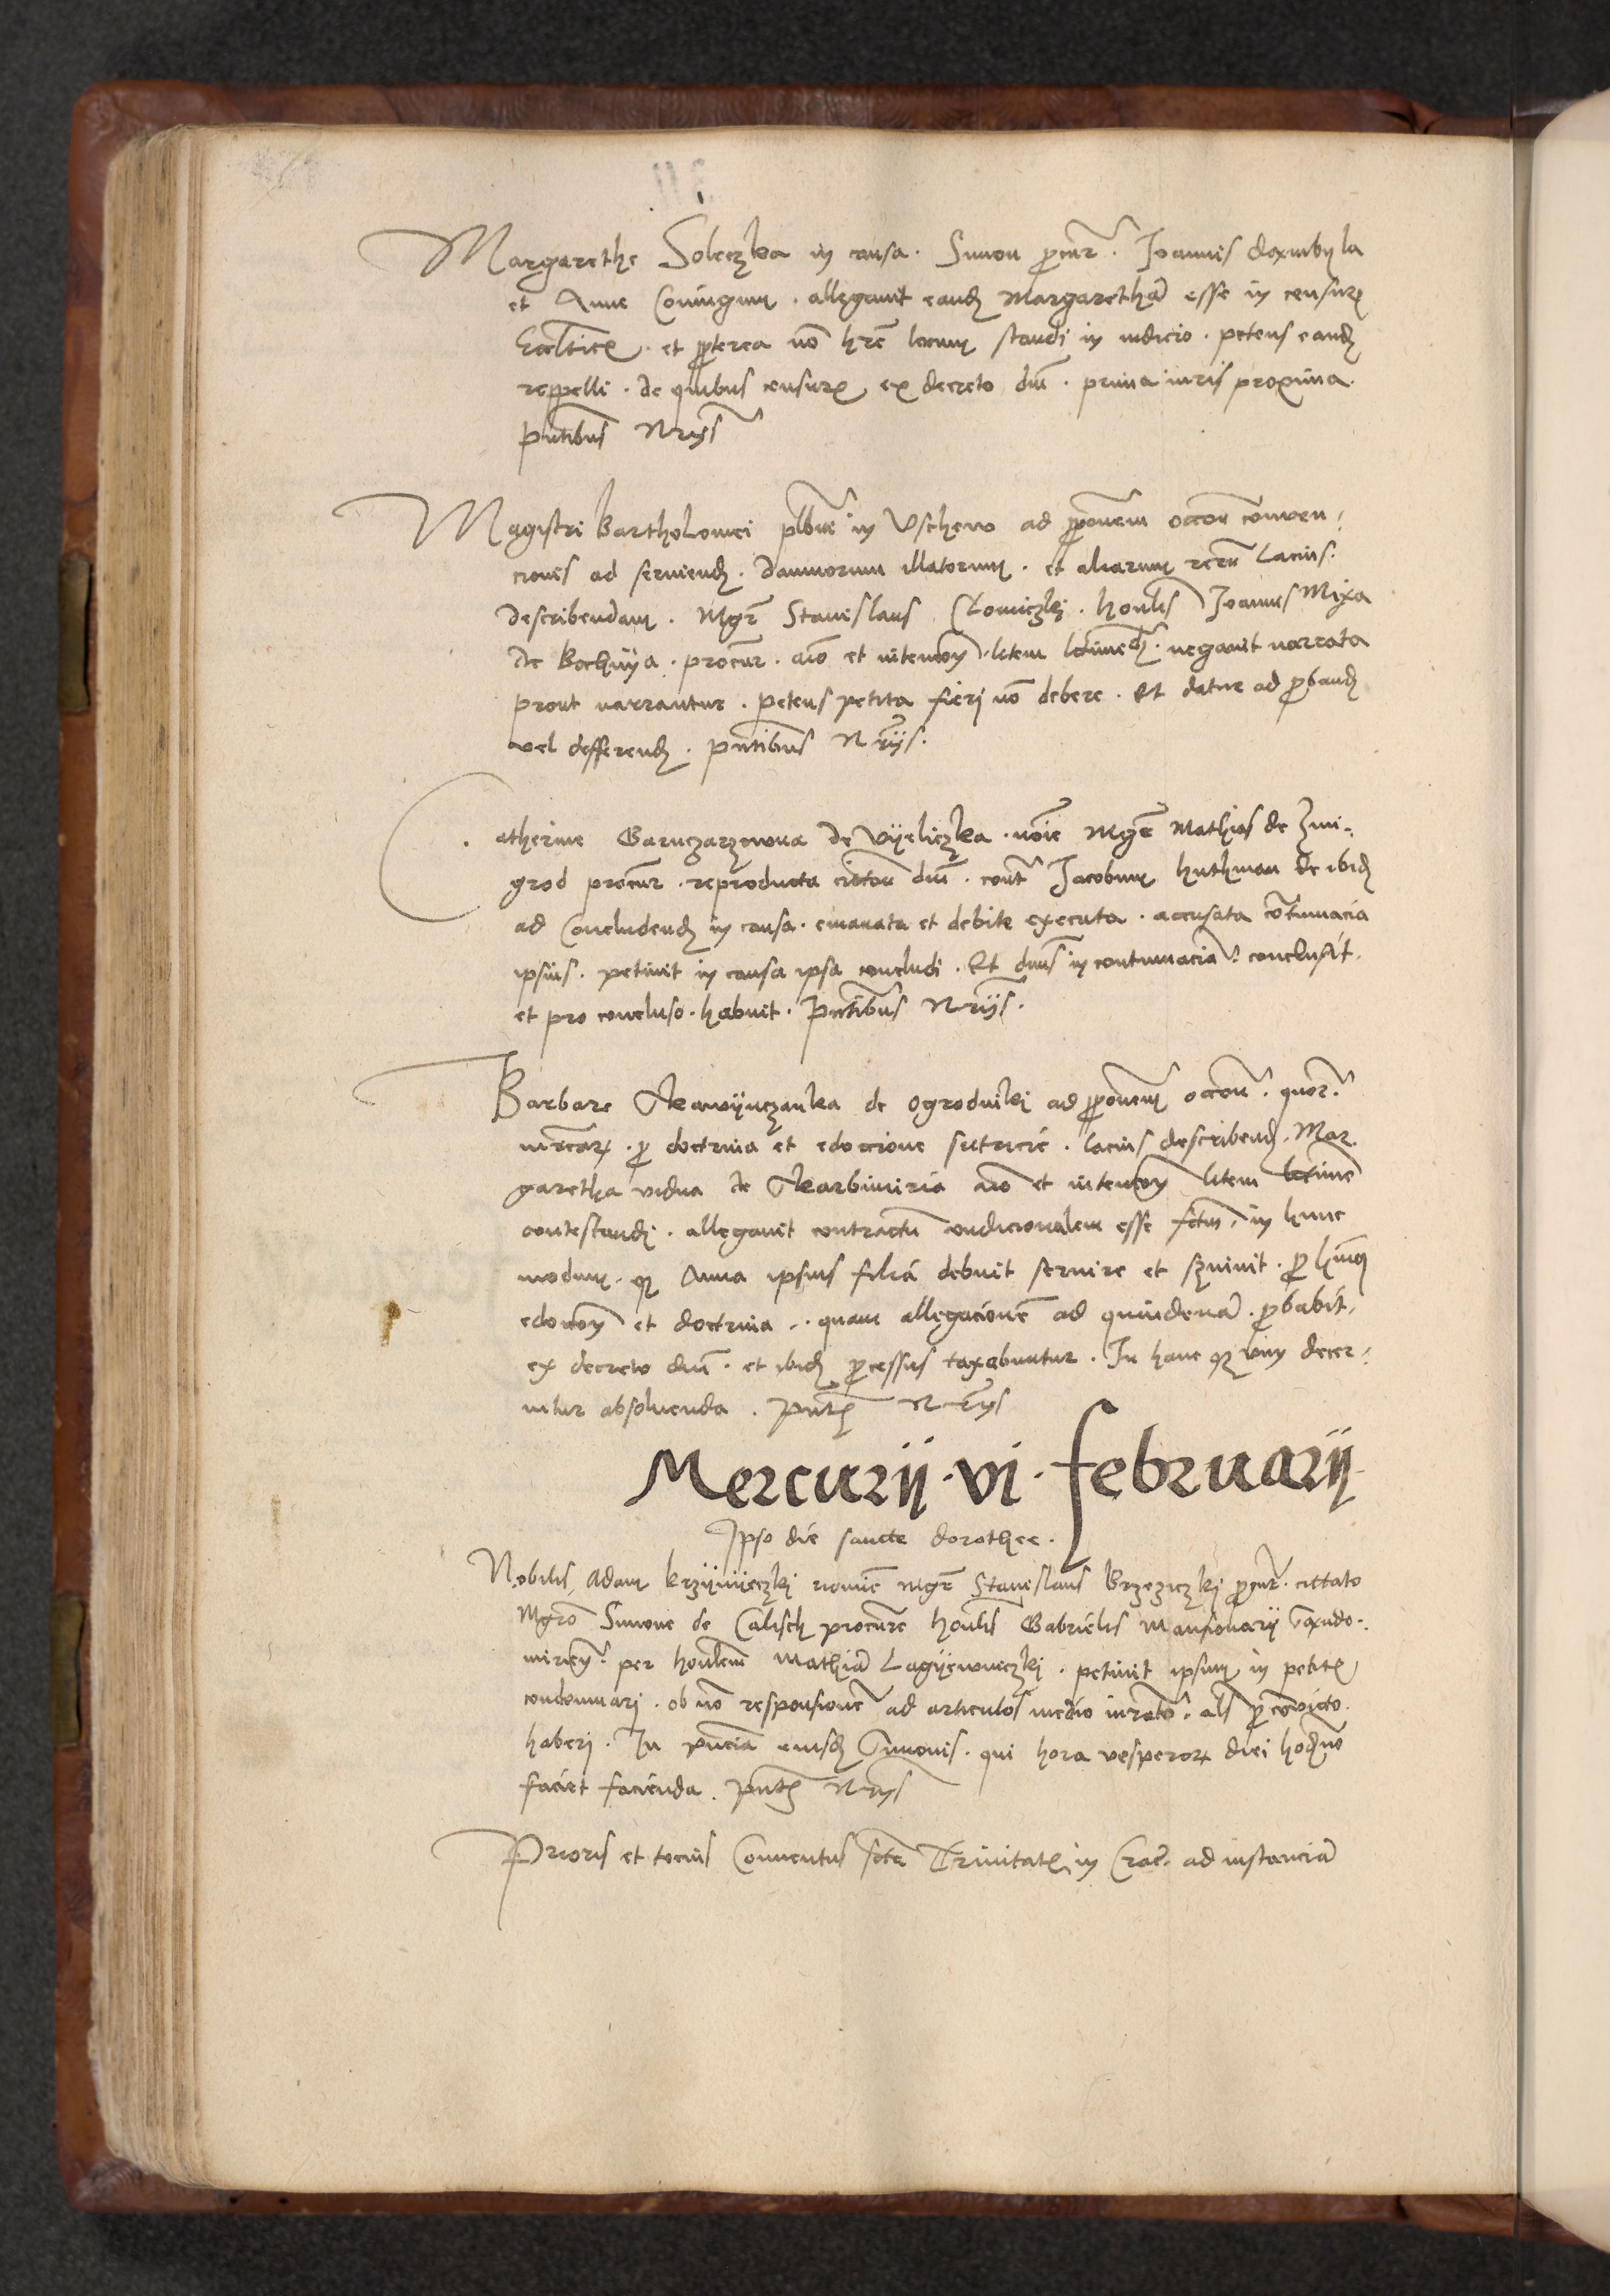 Margarethe Soleczka in causa. Simon procur. Joannis
et Anne Coniugum. allegavit eand Margaretham esse in censuris
Ecclticis. et propterea non hre locum standi in iudicio. petens eand
reppelli. de quibus censuris ex decreto dni. prima iuris proxima.
pntibus Nriis
Magistri Bartholomei plbni in Uschewo ad proponem accon conven-
cionis ad serviend. damnorum illatorum. et aliarum reru lacius
describendam. Mgr Stanislaus Clomiczki. honlis Joannis Mixa
de Bochnya. procur. aio et intencon litem. negavit narrata
prout narrantur. petens petita fieri non debere. Et datur ad proband
vel defferend. pntibus Nriis.
Catherine Garnczarzewna de Vyeliczka. noie Mgr Mathias de Zmi-
grod procur. reproducta citton dni. contr Jacobum huthman de ibid
ad Concludend in causa. emanata et debite executa. accusata contumacia
ipsius. petivit in causa ipsa concludi. Et dnus in contumacia conclusit.
et pro concluso habuit. pntibus Nriis.
Barbare de Ogrodniki ad proponem accon. quor.
mrcar. pro doctrina et edoccione sutricie. lacius describend. Mar-
garetha vidua de aio et intencon litem
contestandi. allegavit contractu condicionalem esse fctm, in hunc
modum. q Anna ipsius filia debuit servire et servivit. pro
edoccon et doctrina. quam allegacione ad quindena. probabit.
ex decreto dni. et ibid processus taxabuntur. In hanc q vim decer-
nitur absolvenda. pntib Nriis
Mercurii. vi. februarii
Ipso die sancte dorothee.
Nobilis Adam krzyviczki nomie Mgr Stanislaus Brzeziczki procur. cittato
Mgro Simone de Calisch procure honlis Gabrielis Mansionarii Sando-
mirien. per honlem Mathia Lagyewniczki. petivit ipsum in petitis
condemnari. ob non responsione ad articulos medio iurato. als pro convicto
haberi. In pncia eiusd Simonis. qui hora vesperor diei hodierno
faciet facienda. pntib Nriis
Prioris et tocius Conventus scte Trinitatis in Crac. ad instancia